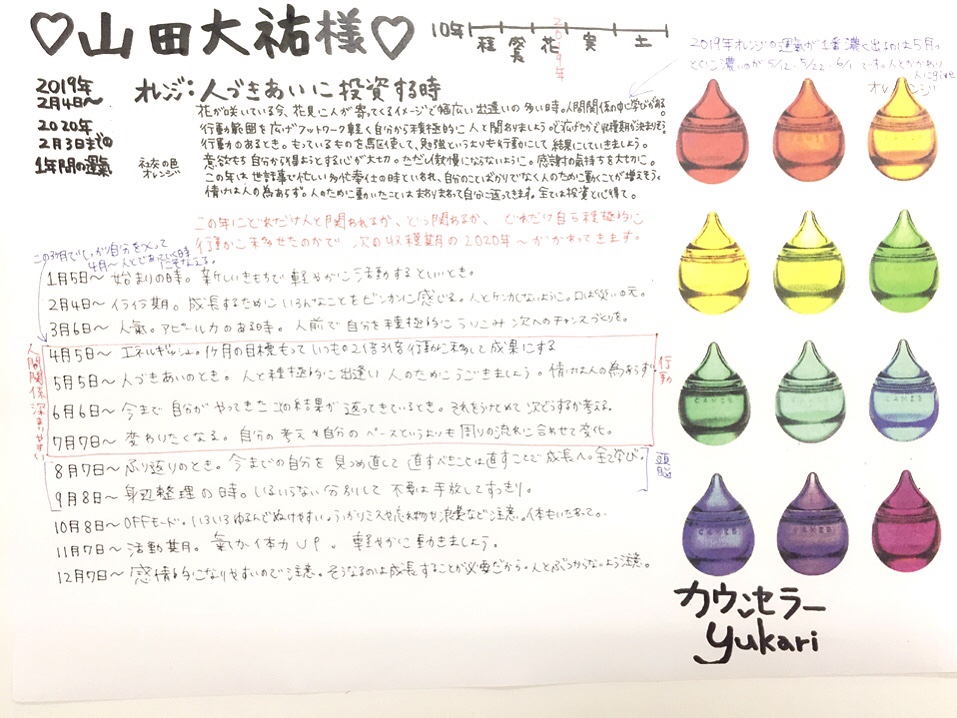 ♡山田大祐様♡
10年
種 葉 花 実 土
2019年
2019年オレンジの運氣が1番濃く出るのは5月。
とくに濃いのが 5/12・5/22・6/1 です。人とかかわり
人にgive
オレンジ
2019年
2月4日〜
2020年
2月3日までの
1年間の運氣
オレンジ：人づきあいに投資する時
花が咲いている今、花見に人が寄ってくるイメージで幅広い出逢いの多い時。人間関係の中に学びが有る。
行動範囲を広げフットワーク軽く自分から積極的に人と関わりましょう。
行動力のあるとき。もっているものを駆使して、勉強というよりも行動にして結果にしていきましょう。
意欲も自分から得ようとする心が大切。ただし傲慢にならないように。感謝の氣持ちを大切に。
この年は世話事で忙しい多忙奉仕の時といわれ、自分のことばかりでなく人のために動くことが増えそう。
情けは人の為あらず。人のために動いたことはまわりまわって自分に返ってきます。全ては投資と心得て。
オレンジ
この年にどれだけ人と関われるか、どう関わるか、どれだけ自ら積極的に
行動に移せたのかで 次の収穫期の2020年〜がかわってきます。
この3ヶ月でしっかり自分をつくって
4月〜人とであっていく時
1月5日〜 始まりの時。新しいきもちで軽やかに活動するといいとき。
2月4日〜 イライラ期。成長するためにいろんなことをビンカンに感じる。人とケンカしないように。口は災いの元。
3月6日〜 人氣。アピール力のある時。人前で自分を積極的にうりこみ次へのチャンスづくりを。
4月5日〜 エネルギッシュ。1ヶ月の目標もっていつもの2倍3倍行動に移して成果にする
5月5日〜 人づきあいのとき。人と積極的に出逢い 人のためにうごきましょう。情けは人の為あらず
6月6日〜 今まで自分がやってきたことの結果が返ってきているとき。それをうけとめて次どうするか考える。
7月7日〜 変わりたくなる。自分の考えや自分のペースというよりも周りの流れに合わせて変化。
人間関係深まりやすい
行動
8月7日〜 ふり返りのとき。今までの自分を見つめ直して直すべきことは直すことで成長へ。全て学び。
9月8日〜 身辺整理の時。いるいらない分別して 不要は手放してすっきり。
頭脳
10月8日〜 OFFモード。いろいろゆるんでぬけやすい。うっかりミスや忘れ物や浪費など注意。体もいたわって。
11月7日〜 活動期。氣力体力UP。軽やかに動きましょう。
12月7日〜 感情的になりやすいので注意。そうなるのは成長することが必要だから。人とぶつからないよう注意。
カウンセラー
yukari